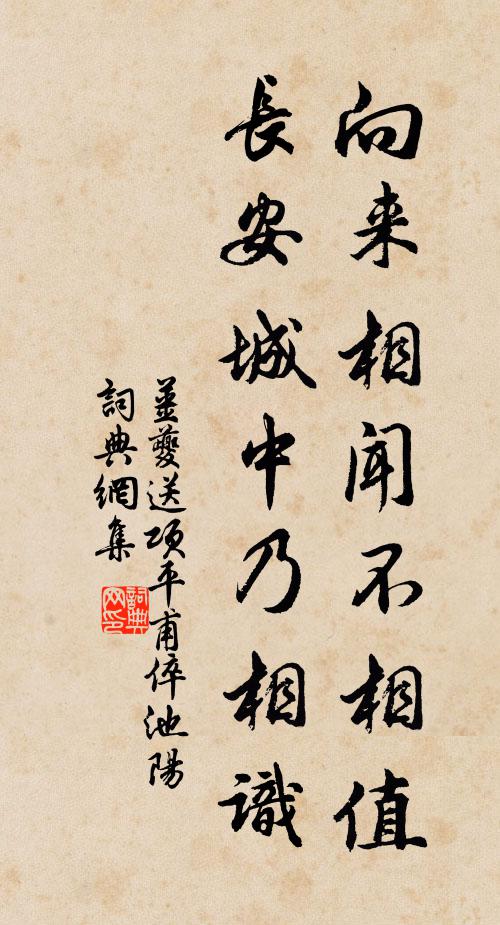 向来相闻不相值
長安城中乃相識
姜夔送项平甫倅池陽
詞典網集
詞典网印